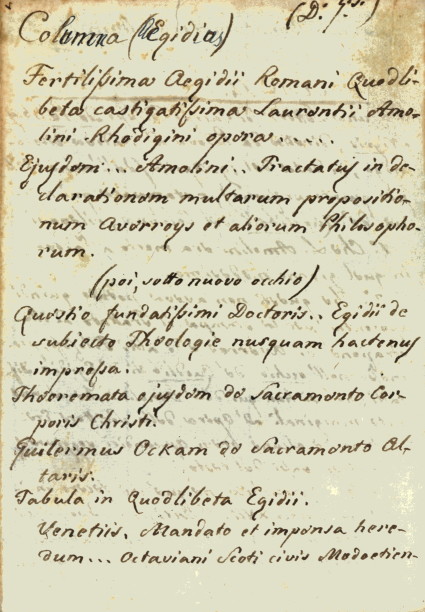 (D. 7.º)
Columna (Egidius)
Fertilissima Aegidii Romani Quodli-
beta castigatissima Laurentii Amo-
lini Rhodigini opera.....
Ejusdem... Amolini.. Tractatus in de-
clarationem multarum propositio-
num Averroys et aliorum Philosopho-
rum.
(poi, sotto nuovo occhio)
Quostio fundatissimi Doctoris.. Egidii de
subiecto Theologie nusquam hactenus
impressa.
Theoremata ejusdem de Sacramento Cor-
poris Christi.
Guilermus Ockam de Sacramento Al-
taris.
Tabula in Quodlibeta Egidii.
Venetiis, Mandato et impensa here-
dum... Octaviani Scoti civis Modoetien-